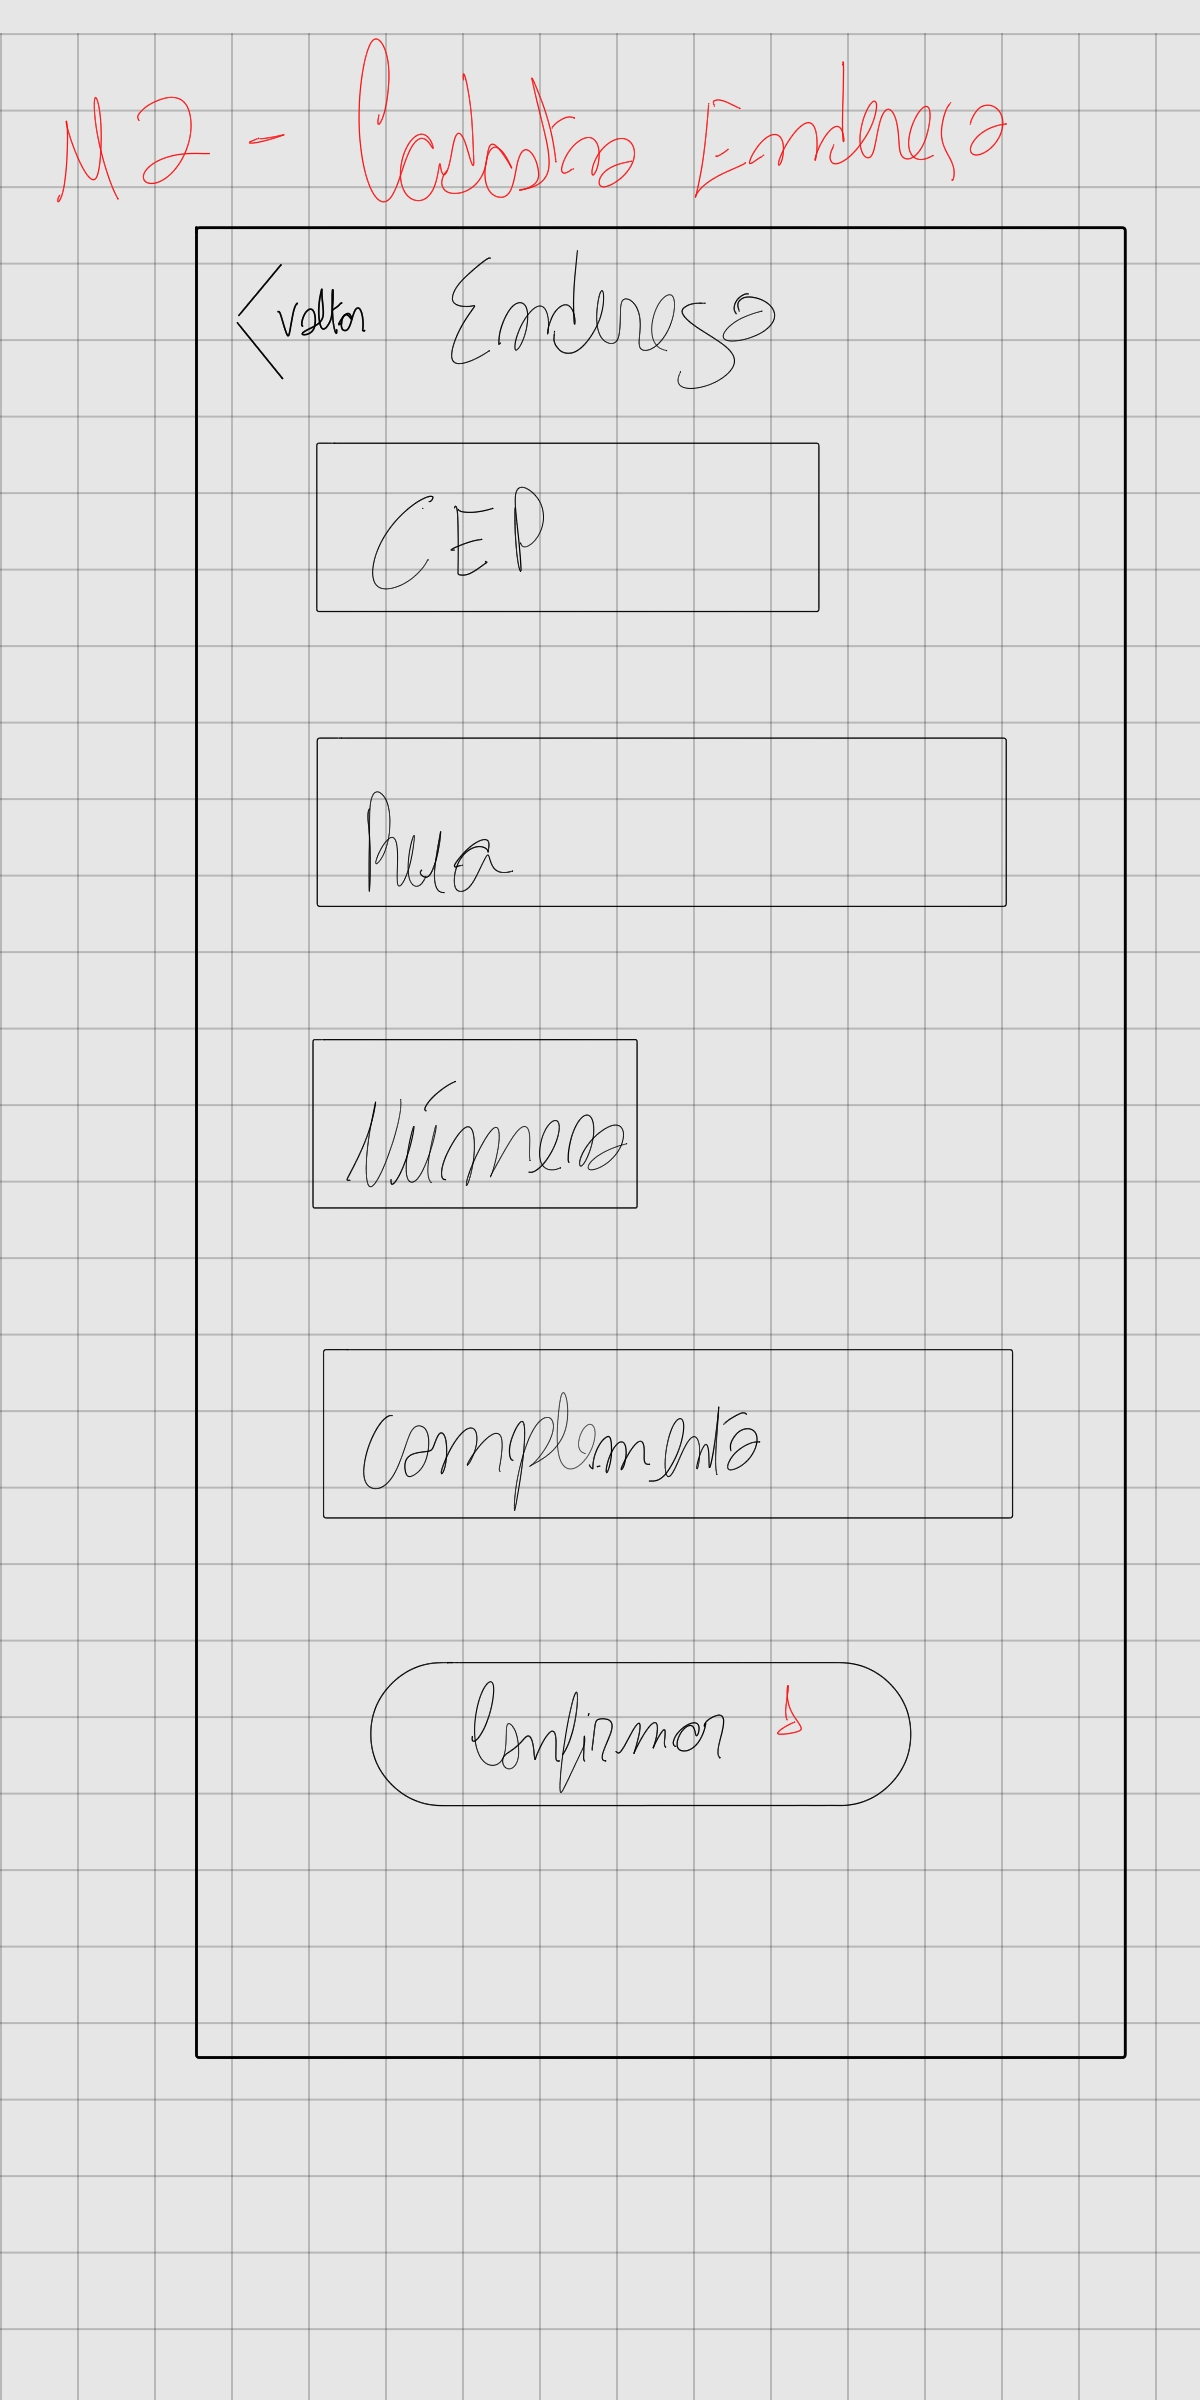 M2 - Cadastro Endereço
< voltar Endereço
CEP
Rua
Número
Complemento
Confirmar